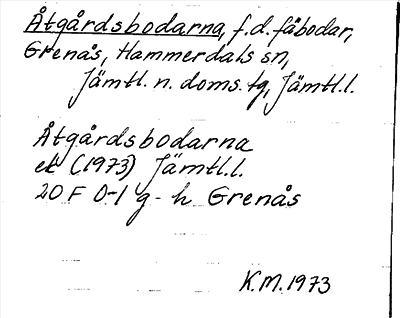 Åtgårdsbodarna, f.d. fäbodar,
Grenås, Hammerdals sn,
Jämtl. n. doms. tg, Jämtl.l.
Åtgårdsbodarna
ek (1973) Jämtl.l.
20 F 0-1 g-h Grenås
K.M. 1973